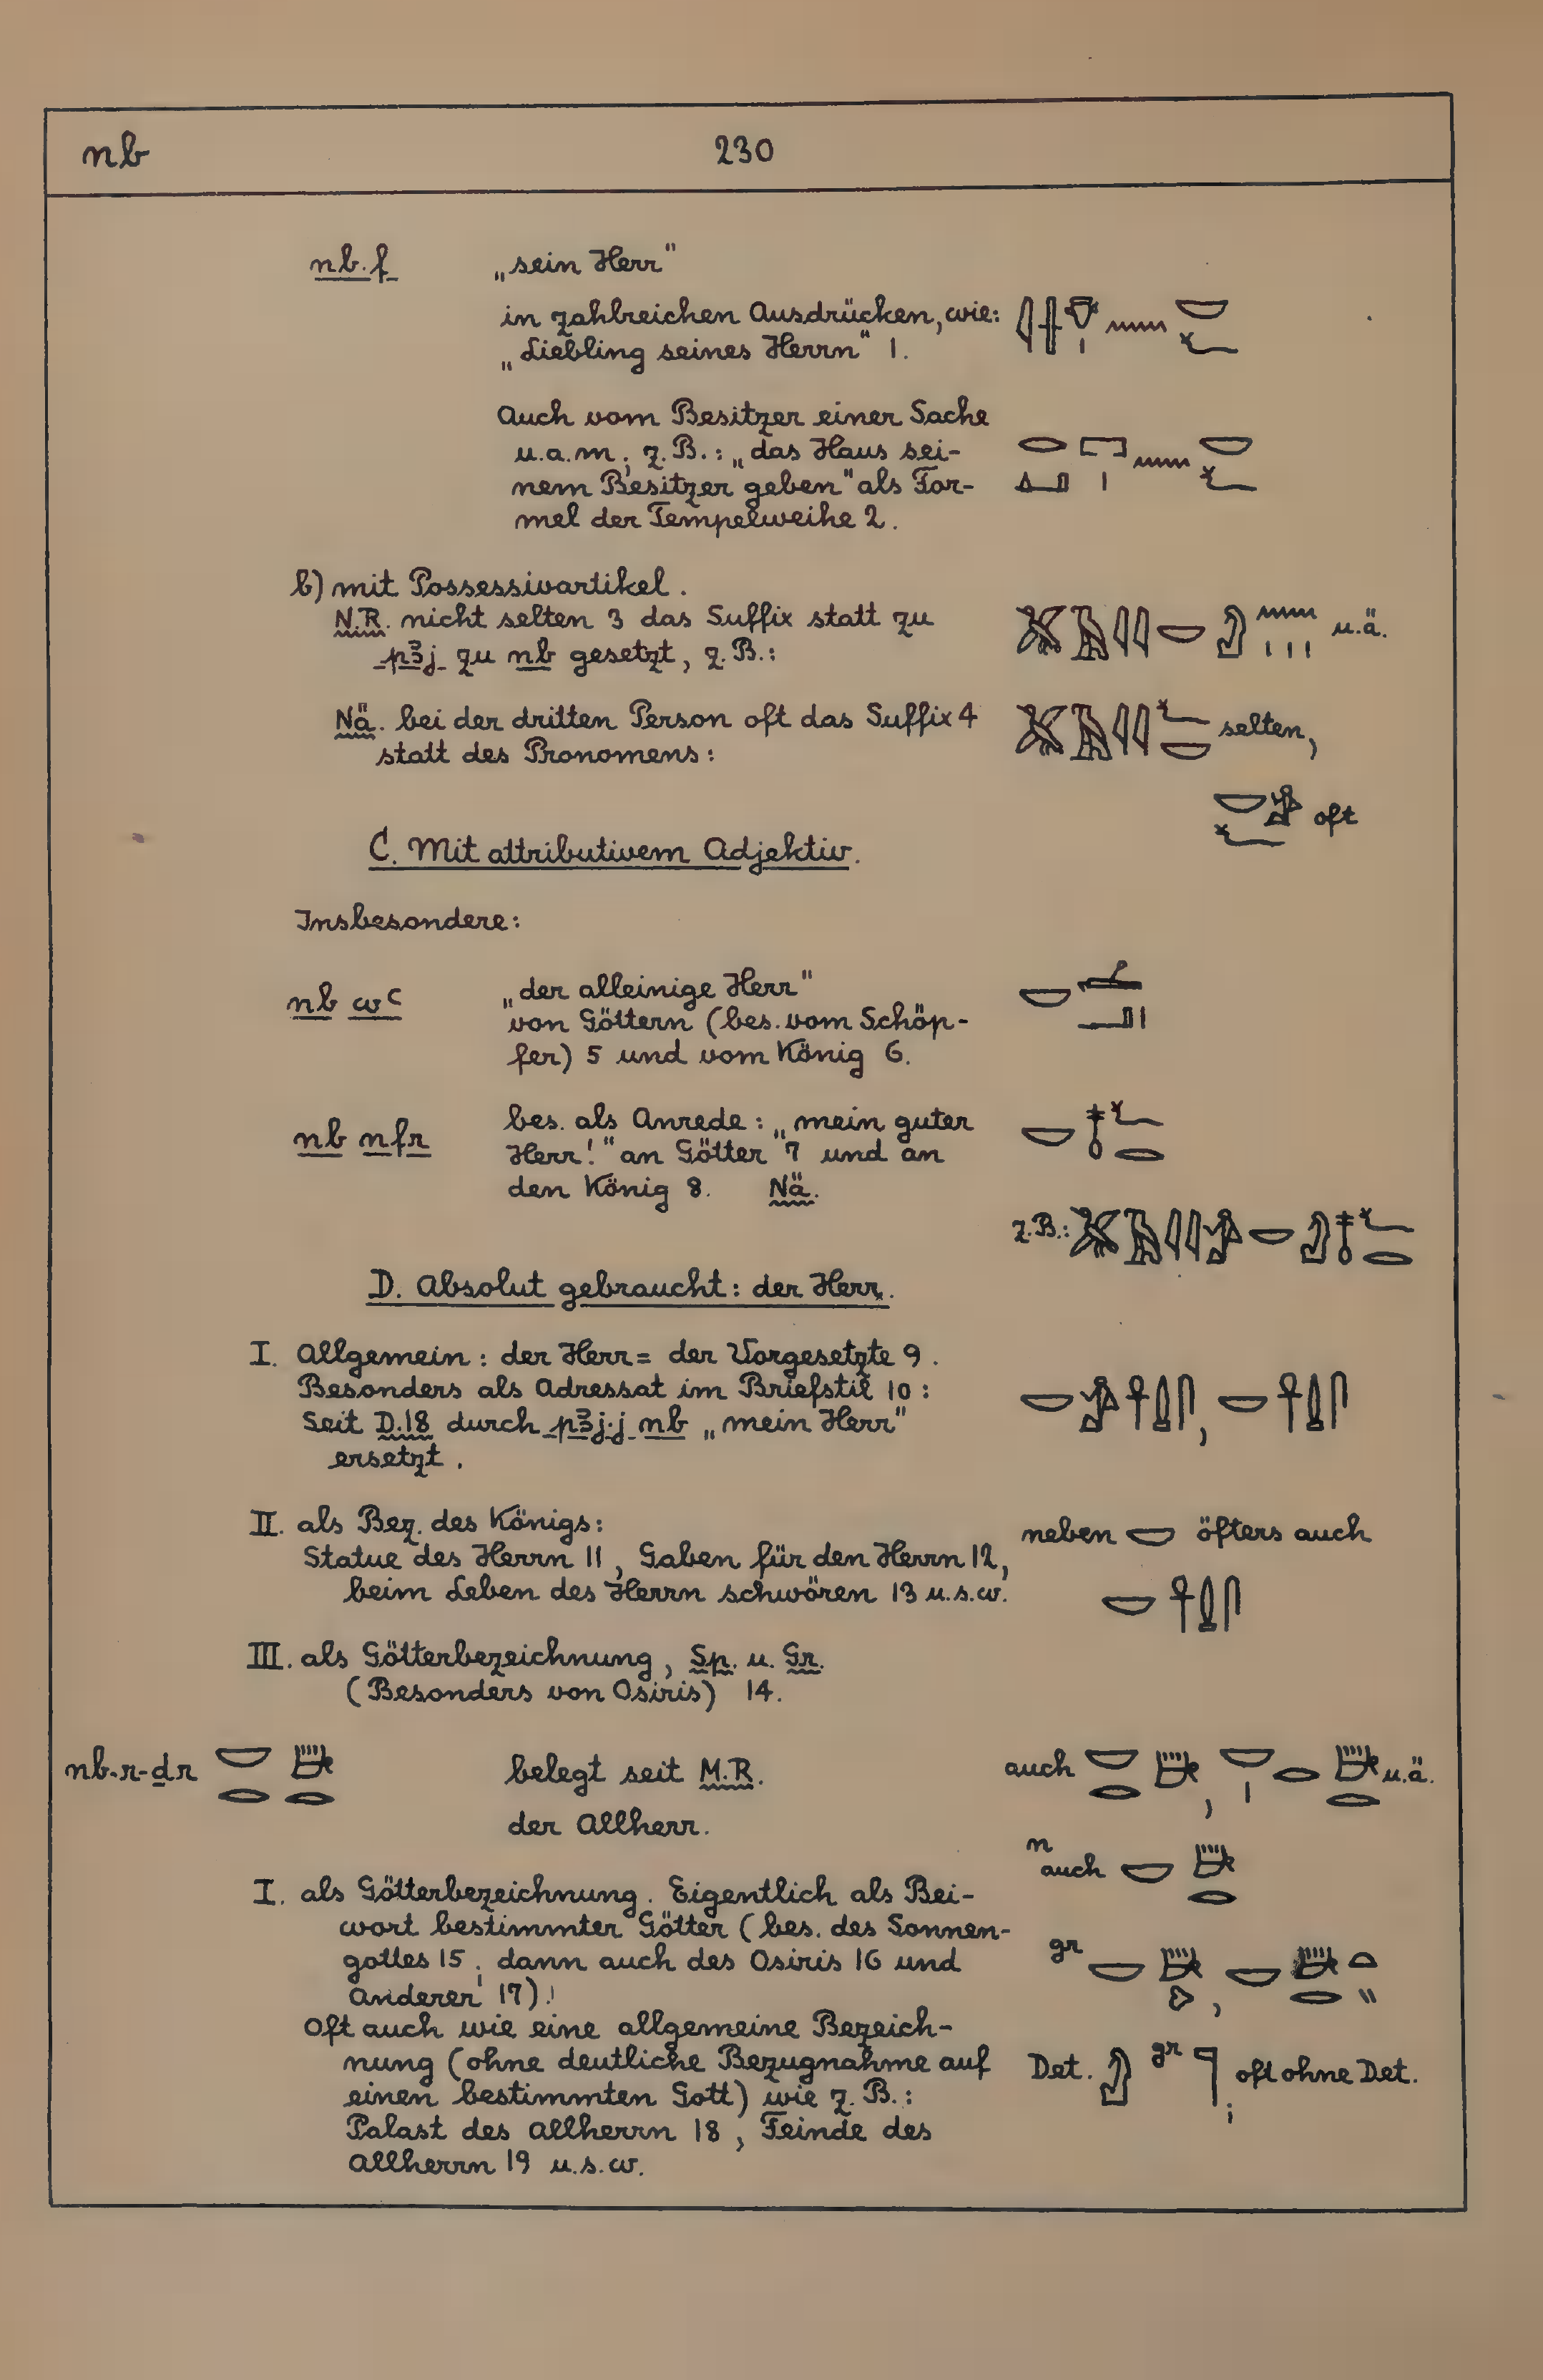 nb 230
nb.f „sein Herr"
in zahlreichen Ausdrücken, wie:
„Liebling seines Herrn" 1.
Auch vom Besitzer einer Sache
u.a.m.; z.B.: „das Haus sei-
nem Besitzer geben" als For-
mel der Tempelweihe 2.
b) mit Possessivartikel.
N.R. nicht selten 3 das Suffix statt zu u.ä.
pꜣj zu nb gesetzt, z.B.:
Nä. bei der dritten Person oft das Suffix 4 selten,
statt des Pronomens:
oft
C. Mit attributivem Adjektiv.
Insbesondere:
nb wꜥ „der alleinige Herr"
von Göttern (bes. vom Schöp-
fer) 5 und vom König 6.
nb nfr bes. als Anrede: „mein guter
Herr!" an Götter 7 und an
den König 8. Nä.
z.B.:
D. Absolut gebraucht: der Herr.
I. Allgemein: der Herr = der Vorgesetzte 9.
Besonders als Adressat im Briefstil 10:
Seit D.18 durch pꜣj.j nb „mein Herr"
ersetzt.
II. als Bez. des Königs: neben öfters auch
Statue des Herrn 11, Gaben für den Herrn 12,
beim Leben des Herrn schwören 13 u.s.w.
III. als Götterbezeichnung, Sp. u. Gr.
(Besonders von Osiris) 14.
nb-r-ḏr belegt seit M.R. auch u.ä.
der Allherr.
n auch
I. als Götterbezeichnung. Eigentlich als Bei-
wort bestimmter Götter (bes. des Sonnen-
gottes 15; dann auch des Osiris 16 und gr
anderer 17).
Oft auch wie eine allgemeine Bezeich-
nung (ohne deutliche Bezugnahme auf Det. gr ; oft ohne Det.
einen bestimmten Gott) wie z.B.:
Palast des Allherrn 18, Feinde des
Allherrn 19 u.s.w.